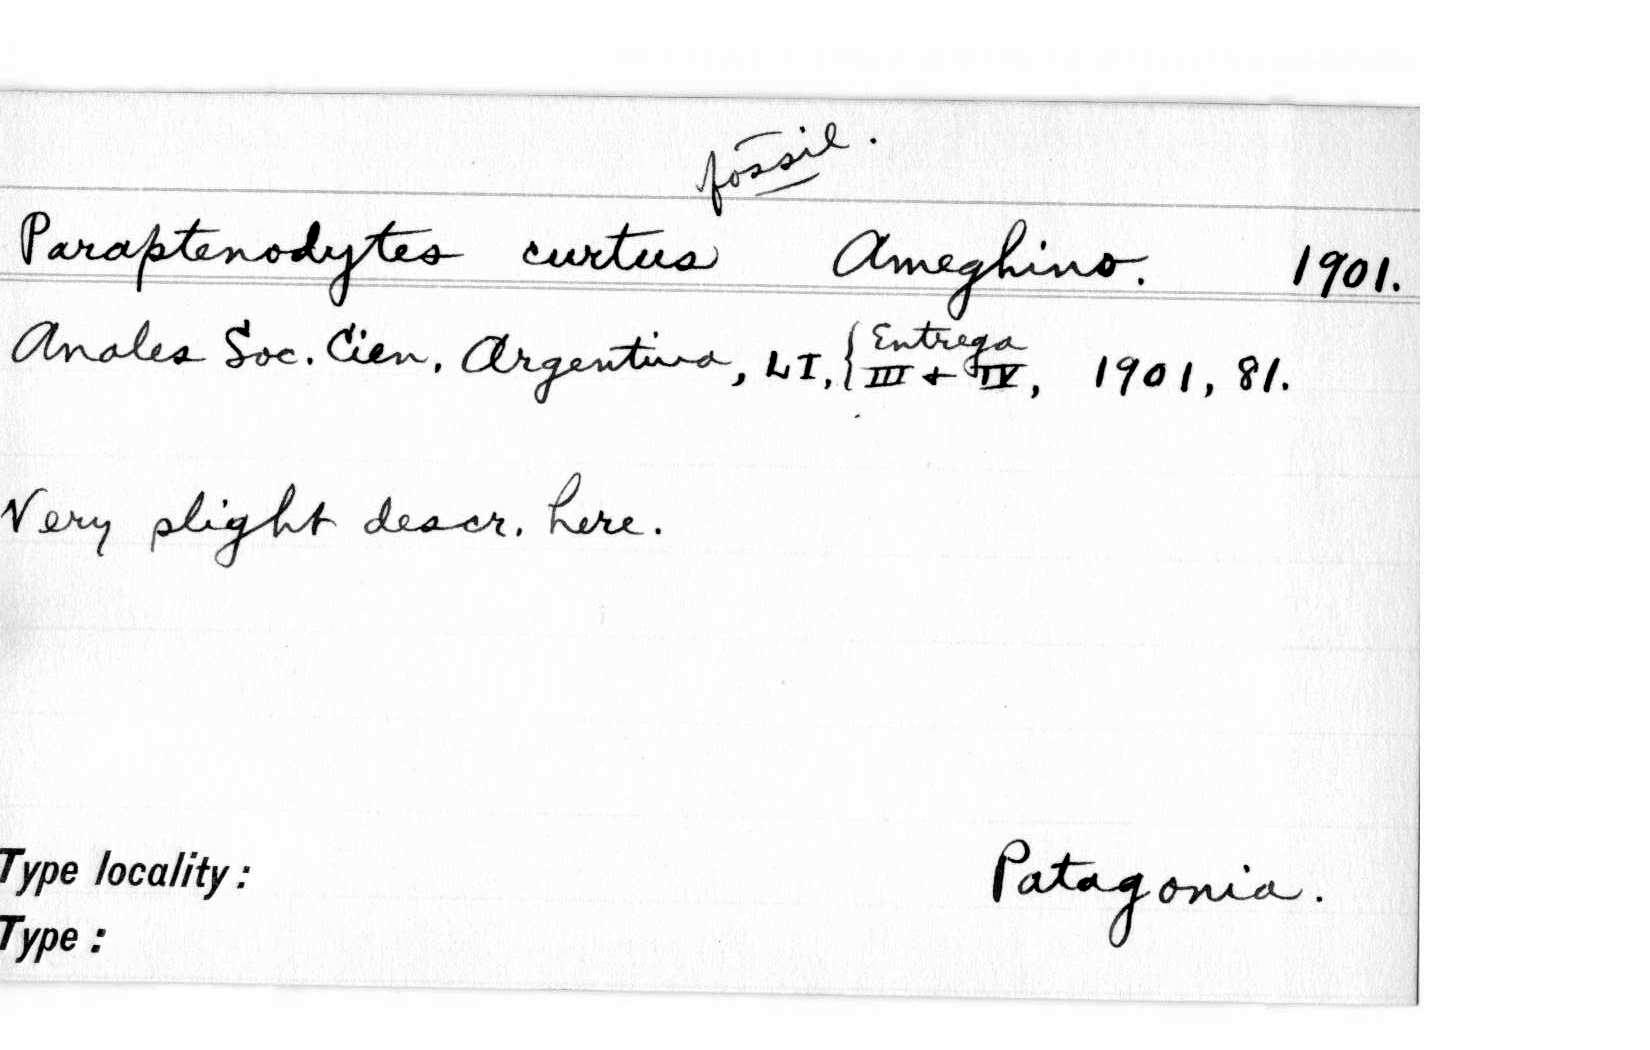 fossil.
Paraptenodytes curtus Ameghino. 1901.
Anales Soc. Cien. Argentina, LI, { Entrega III + IV, 1901, 81.
Very slight descr. here.
Type locality: Patagonia.
Type: